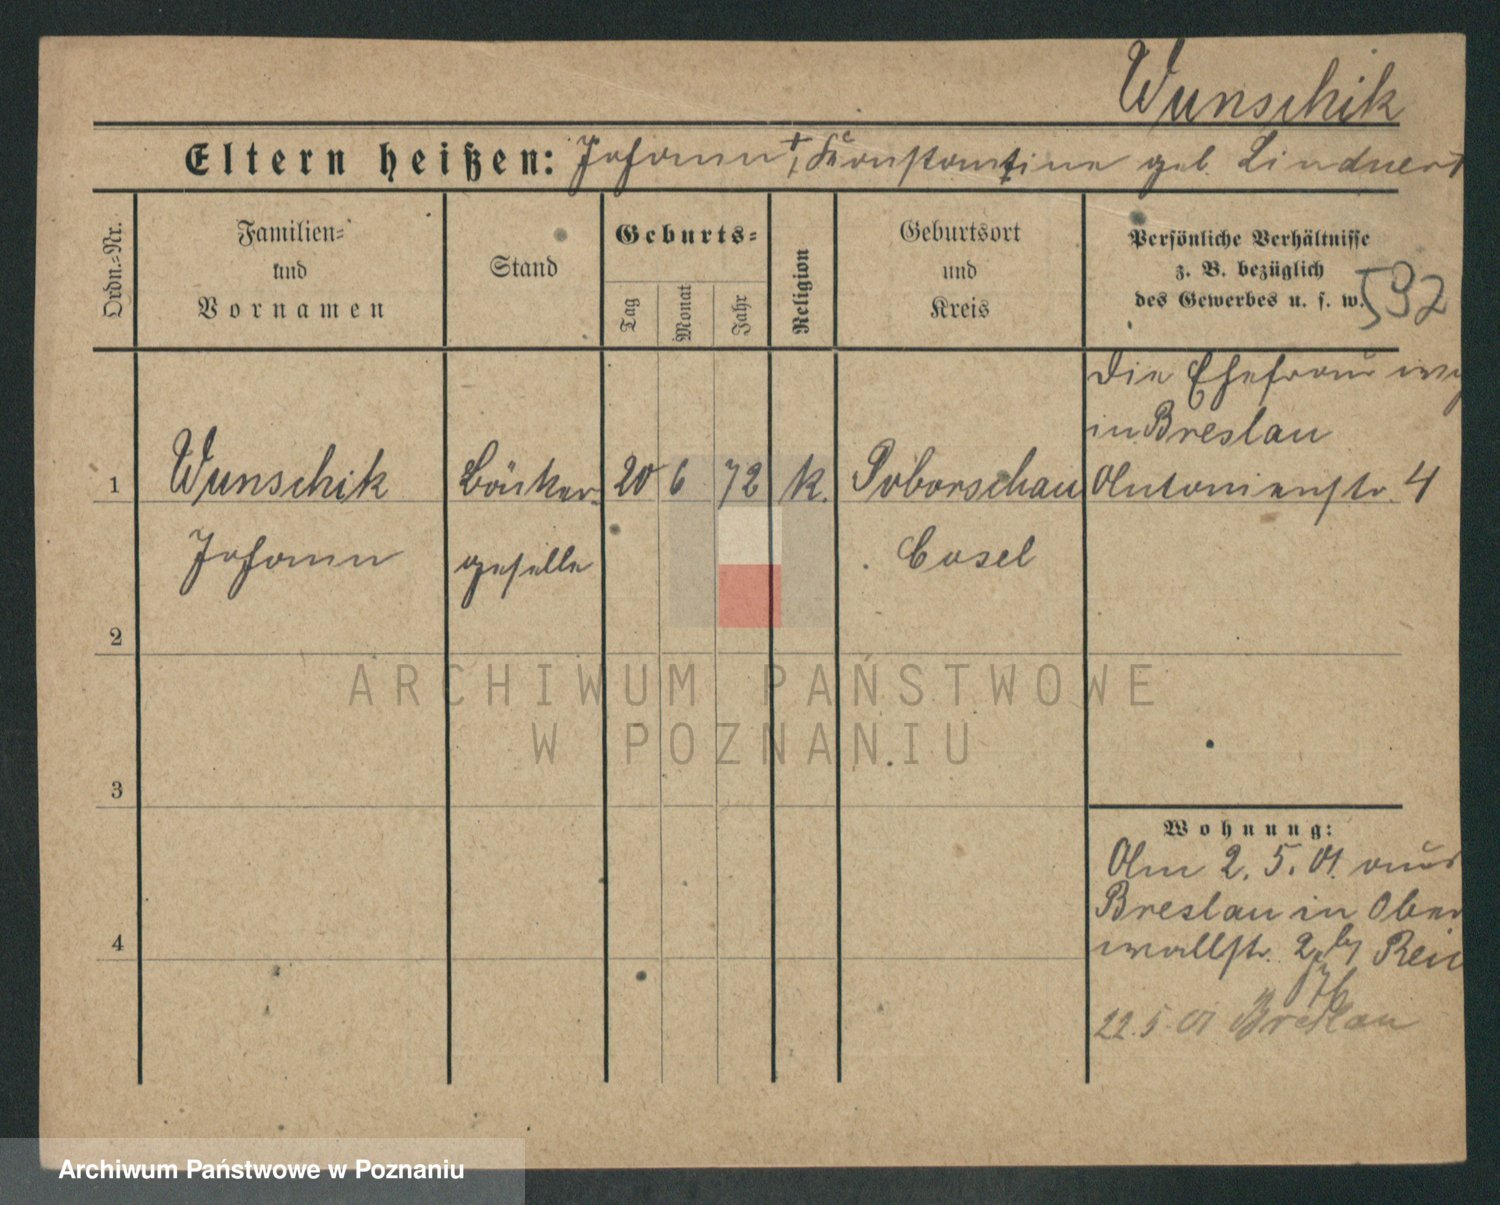 Wunschik
Eltern heißen: Johann †, Konstantine geb. Lindner
Ordn.-Nr.
Familien-
und
Vornamen
Stand
Geburts-
Tag
Monat
Jahr
Religion
Geburtsort
und
Kreis
Persönliche Verhältnisse
z. B. bezüglich
des Gewerbes u. s. w.
592
1
Wunschik
Johann
Bäcker-
geselle
20
6
72
k.
Poborschau
Cosel
Die Ehefrau
in Breslau
Antonienstr. 4
2
3
4
Wohnung:
Am 2. 5. 01. aus
Breslau in Ober
wallstr. 2 by
22. 5. 01 Breslau
ARCHIWUM PAŃSTWOWE
W POZNANIU
Archiwum Państwowe w Poznaniu